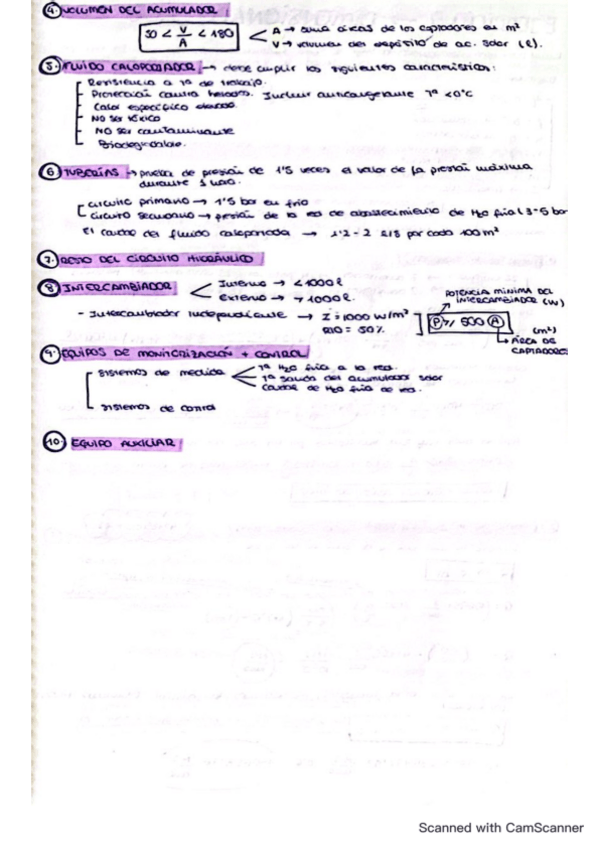 ④ VOLUMEN DEL ACUMULADOR
50 < V/A < 180
A → suma áreas de los captadores en m²
V → volumen del depósito de ac. solar (l).
5. FLUIDO CALOPORTADOR → debe cumplir las siguientes características:
Resistencia a Tª de trabajo.
Protección contra heladas. Incluir anticongelante Tª <0°C
Calor específico elevado
NO SER TÓXICO
NO SER contaminante
Biodegradable.
⑥ TUBERÍAS → prueba de presión de 1'5 veces el valor de la presión máxima
durante 1 hora.
circuito primario → 1'5 bar en frío
Circuito secundario → presión de la red de abastecimiento de H₂O fría (3-5 bar
El caudal del fluido caloportador → 1'2 - 2 l/s por cada 100 m²
7. RESTO DEL CIRCUITO HIDRÁULICO
⑧ INTERCAMBIADOR
Interno → < 1000 l
Externo → > 1000 l.
POTENCIA MÍNIMA DEL
INTERCAMBIADOR (W)
- Intercambiador independiente → I = 1000 W/m²
= 50%
P ≥ 500 A
(m²)
ÁREA DE
CAPTADORES
9. EQUIPOS DE MONITORIZACIÓN + CONTROL
Sistemas de medida
Tª H₂O fría a la red.
Tª salida del acumulador solar
Caudal de H₂O fría de red.
Sistemas de control
10. EQUIPO AUXILIAR
Scanned with CamScanner